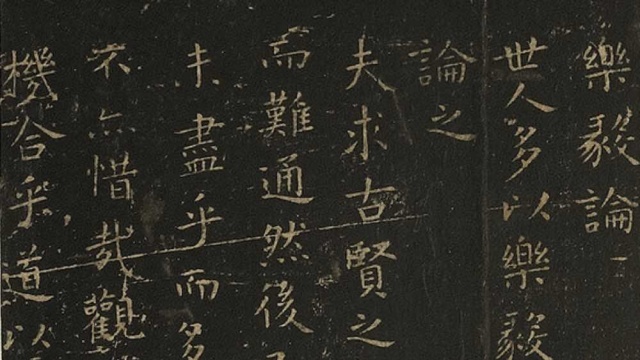 樂毅論
世人多以樂毅
論之
夫求古賢之
而難通然後
未盡乎而多
不亦惜哉觀
機合乎道以